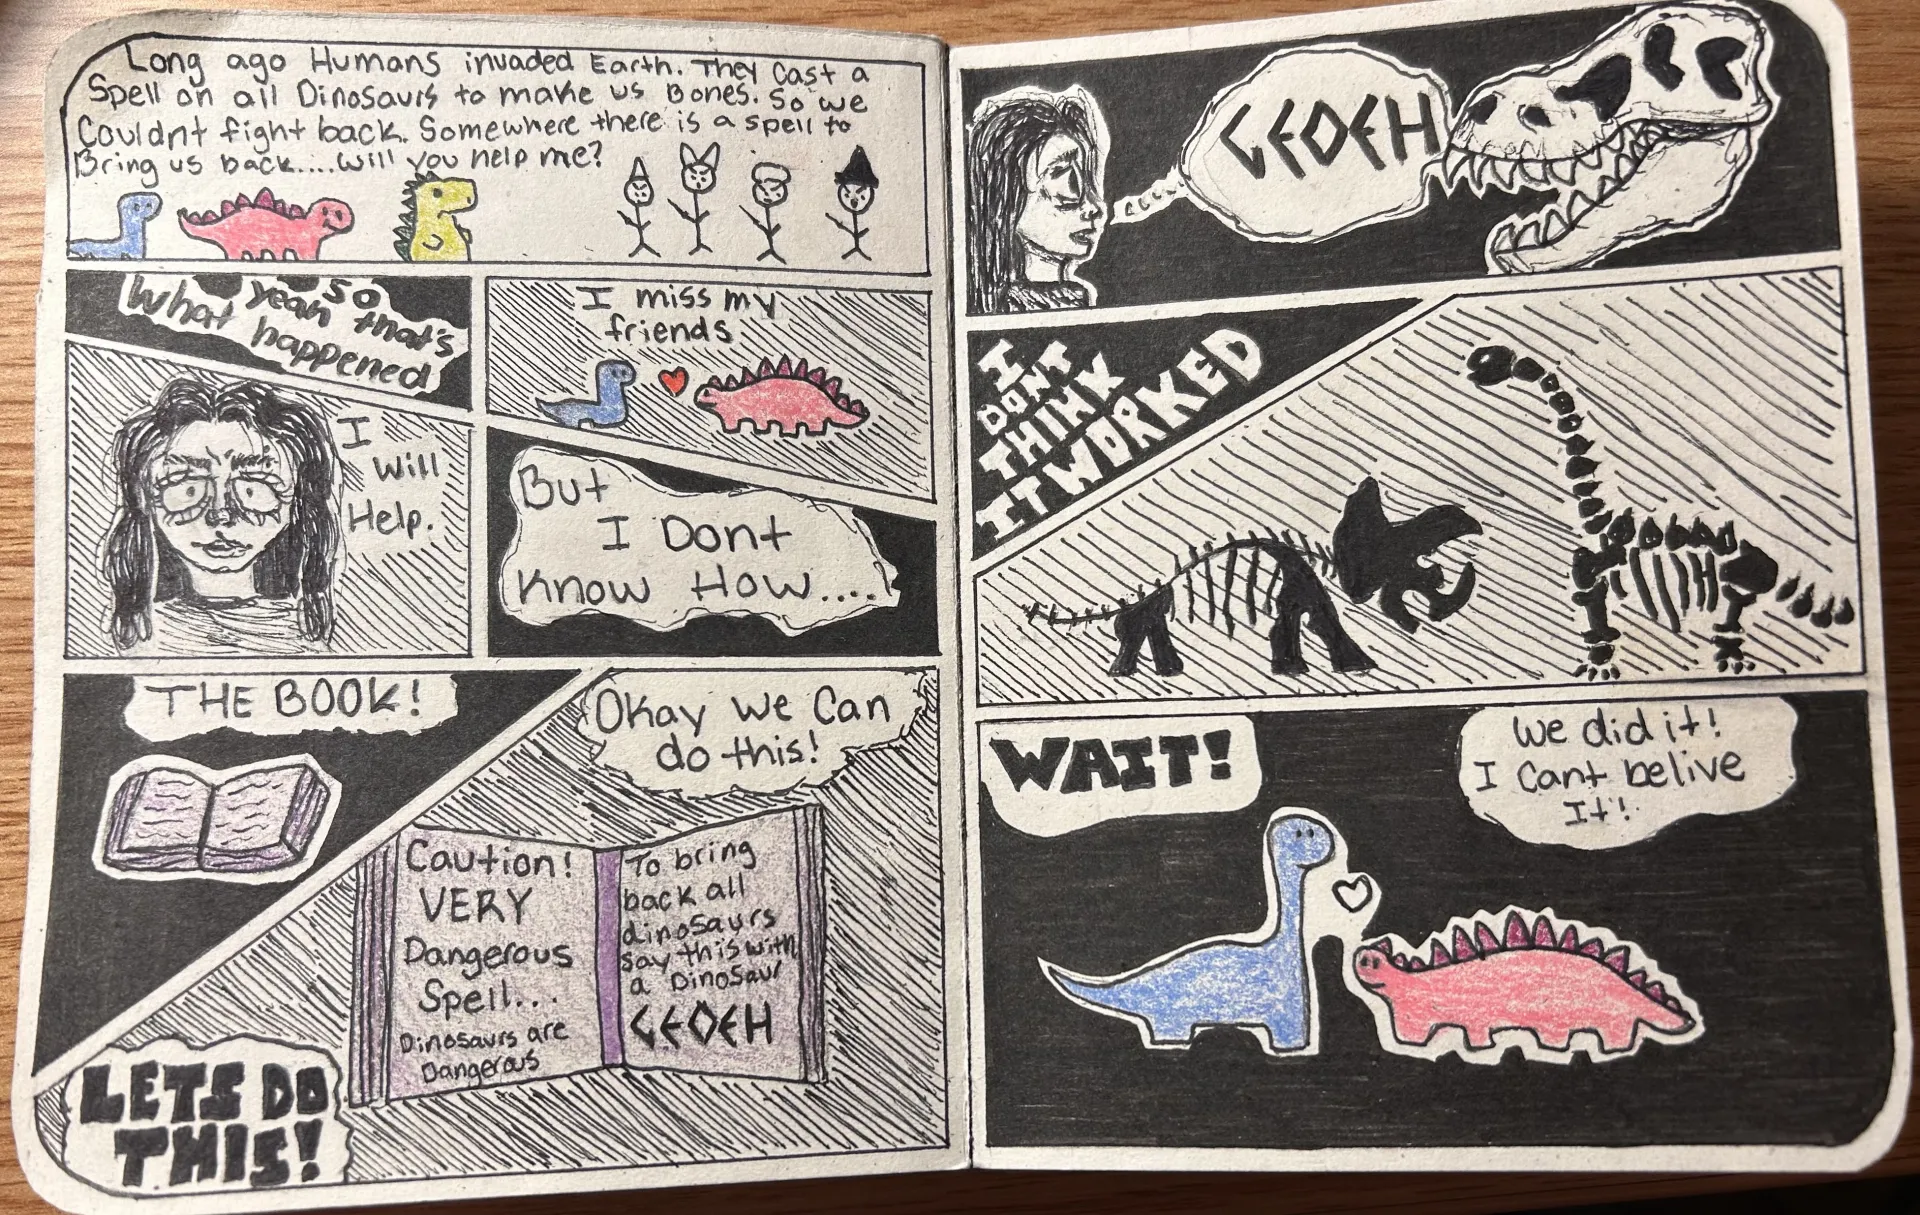 Long ago Humans invaded Earth. They Cast a
Spell on all Dinosaurs to make us Bones. So we
Couldnt fight back. Somewhere there is a spell to
Bring us back....will you help me?
So
yeah that's
What happened
I miss my
friends
I
will
Help.
But
I Dont
Know How....
THE BOOK!
Okay we Can
do this!
Caution!
VERY
Dangerous
Spell...
Dinosaurs are
Dangerous
To bring
back all
dinosaurs
say this with
a Dinosaur
GEOEH
LETS DO
THIS!
GEOEH
I
DONT
THINK
IT WORKED
WAIT!
We did it!
I Cant belive
It!